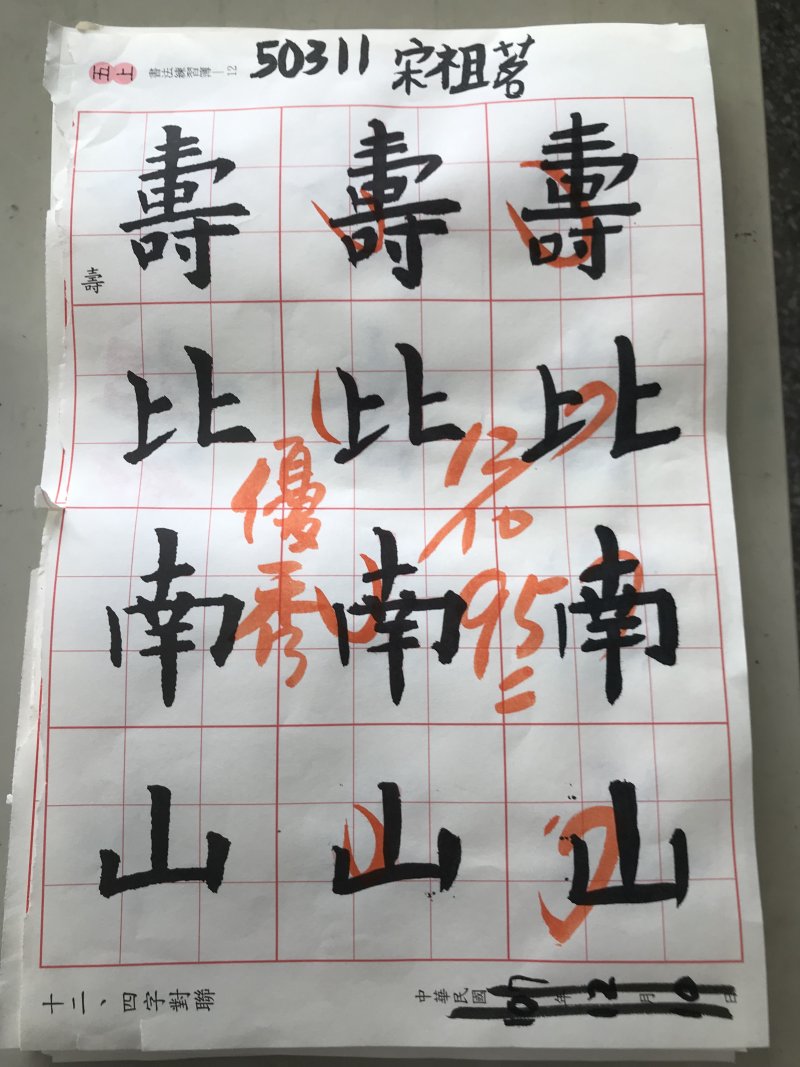 五上 書法練習簿—12 50311 宋祖茗
壽 壽 壽
壽
比 比 比
優秀
95
南 南 南
山 山 山
十二、四字對聯
中華民國107年12月10日